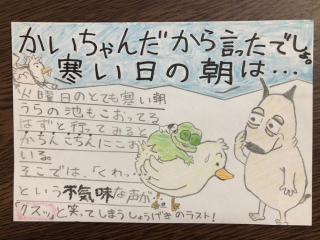 かいちゃんだから言ったでしょ。
寒い日の朝は…
火曜日のとても寒い朝
うらの池もこおってる
はずと行ってみると
かちんこちんにこおって
いる。
そこでは、「くわっ
という不気味な声が
「クスッ」と笑ってしまうしょうげきのラスト!